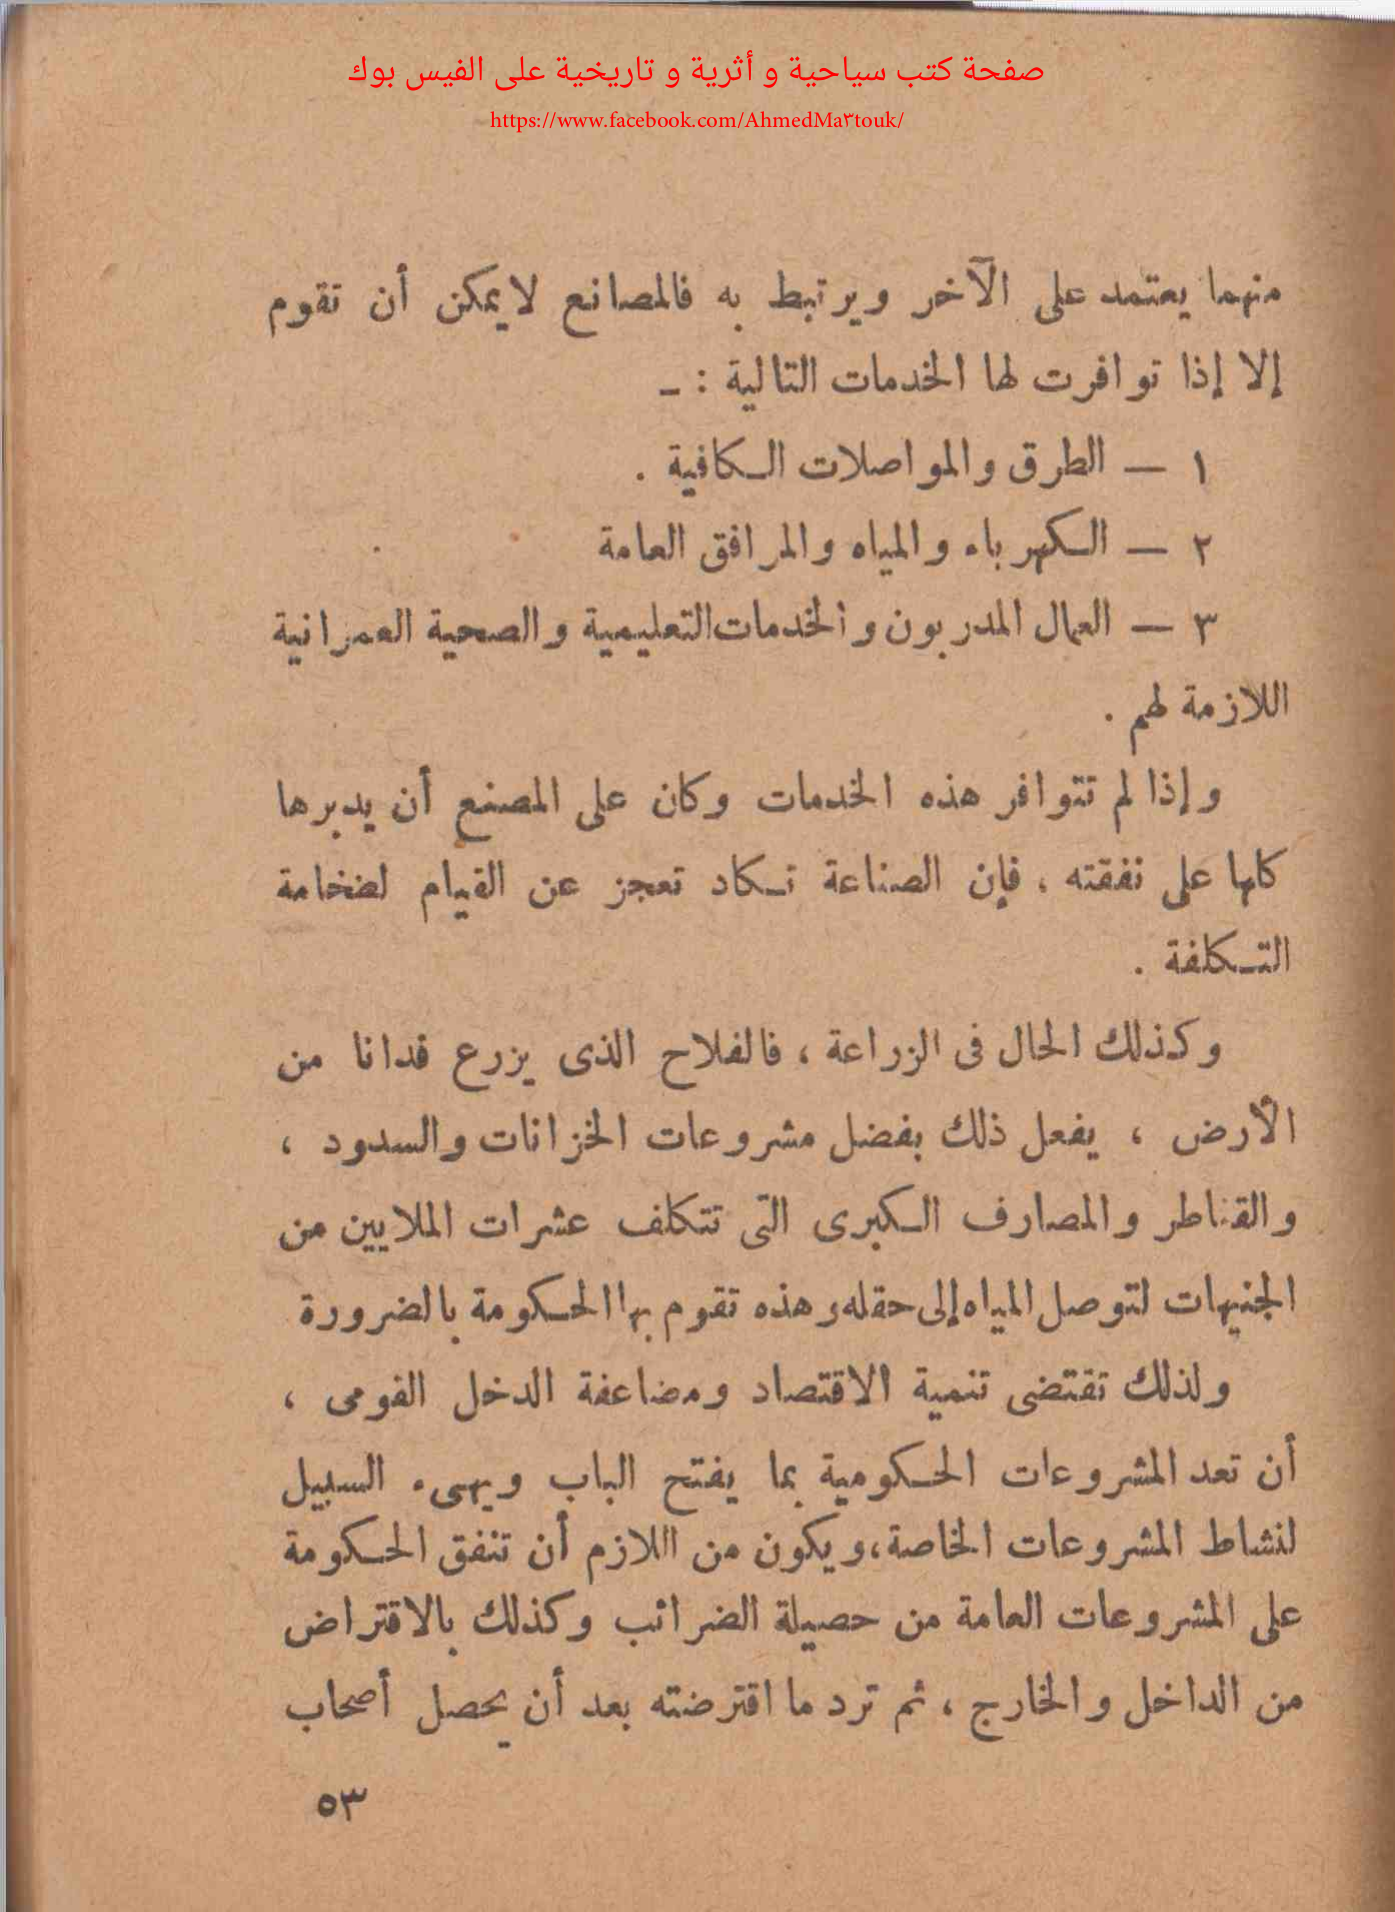 صفحة كتب سياحية و أثرية و تاريخية على الفيس بوك
https://www.facebook.com/AhmedMa٣touk/
منهما يعتمد على الآخر ويرتبط به فالمصانع لا يمكن أن تقوم
إلا إذا توافرت لها الخدمات التالية : ــ
١ — الطرق والمواصلات الكافية .
٢ — الكهرباء والمياه والمرافق العامة
٣ — العمال المدربون والخدمات التعليمية والصحية العمرانية
اللازمة لهم .
وإذا لم تتوافر هذه الخدمات وكان على المصنع أن يدبرها
كلها على نفقته ، فإن الصناعة تكاد تعجز عن القيام لضخامة
التكلفة .
وكذلك الحال فى الزراعة ، فالفلاح الذى يزرع فدانا من
الأرض ، يفعل ذلك بفضل مشروعات الخزانات والسدود ،
والقناطر والمصارف الكبرى التى تتكلف عشرات الملايين من
الجنيهات لتوصل المياه إلى حقله وهذه تقوم بها الحكومة بالضرورة
ولذلك تقتضى تنمية الاقتصاد ومضاعفة الدخل القومى ،
أن تعد المشروعات الحكومية بما يفتح الباب ويهىء السبيل
لنشاط المشروعات الخاصة ، ويكون من اللازم أن تنفق الحكومة
على المشروعات العامة من حصيلة الضرائب وكذلك بالاقتراض
من الداخل والخارج ، ثم ترد ما اقترضته بعد أن يحصل أصحاب
٥٣